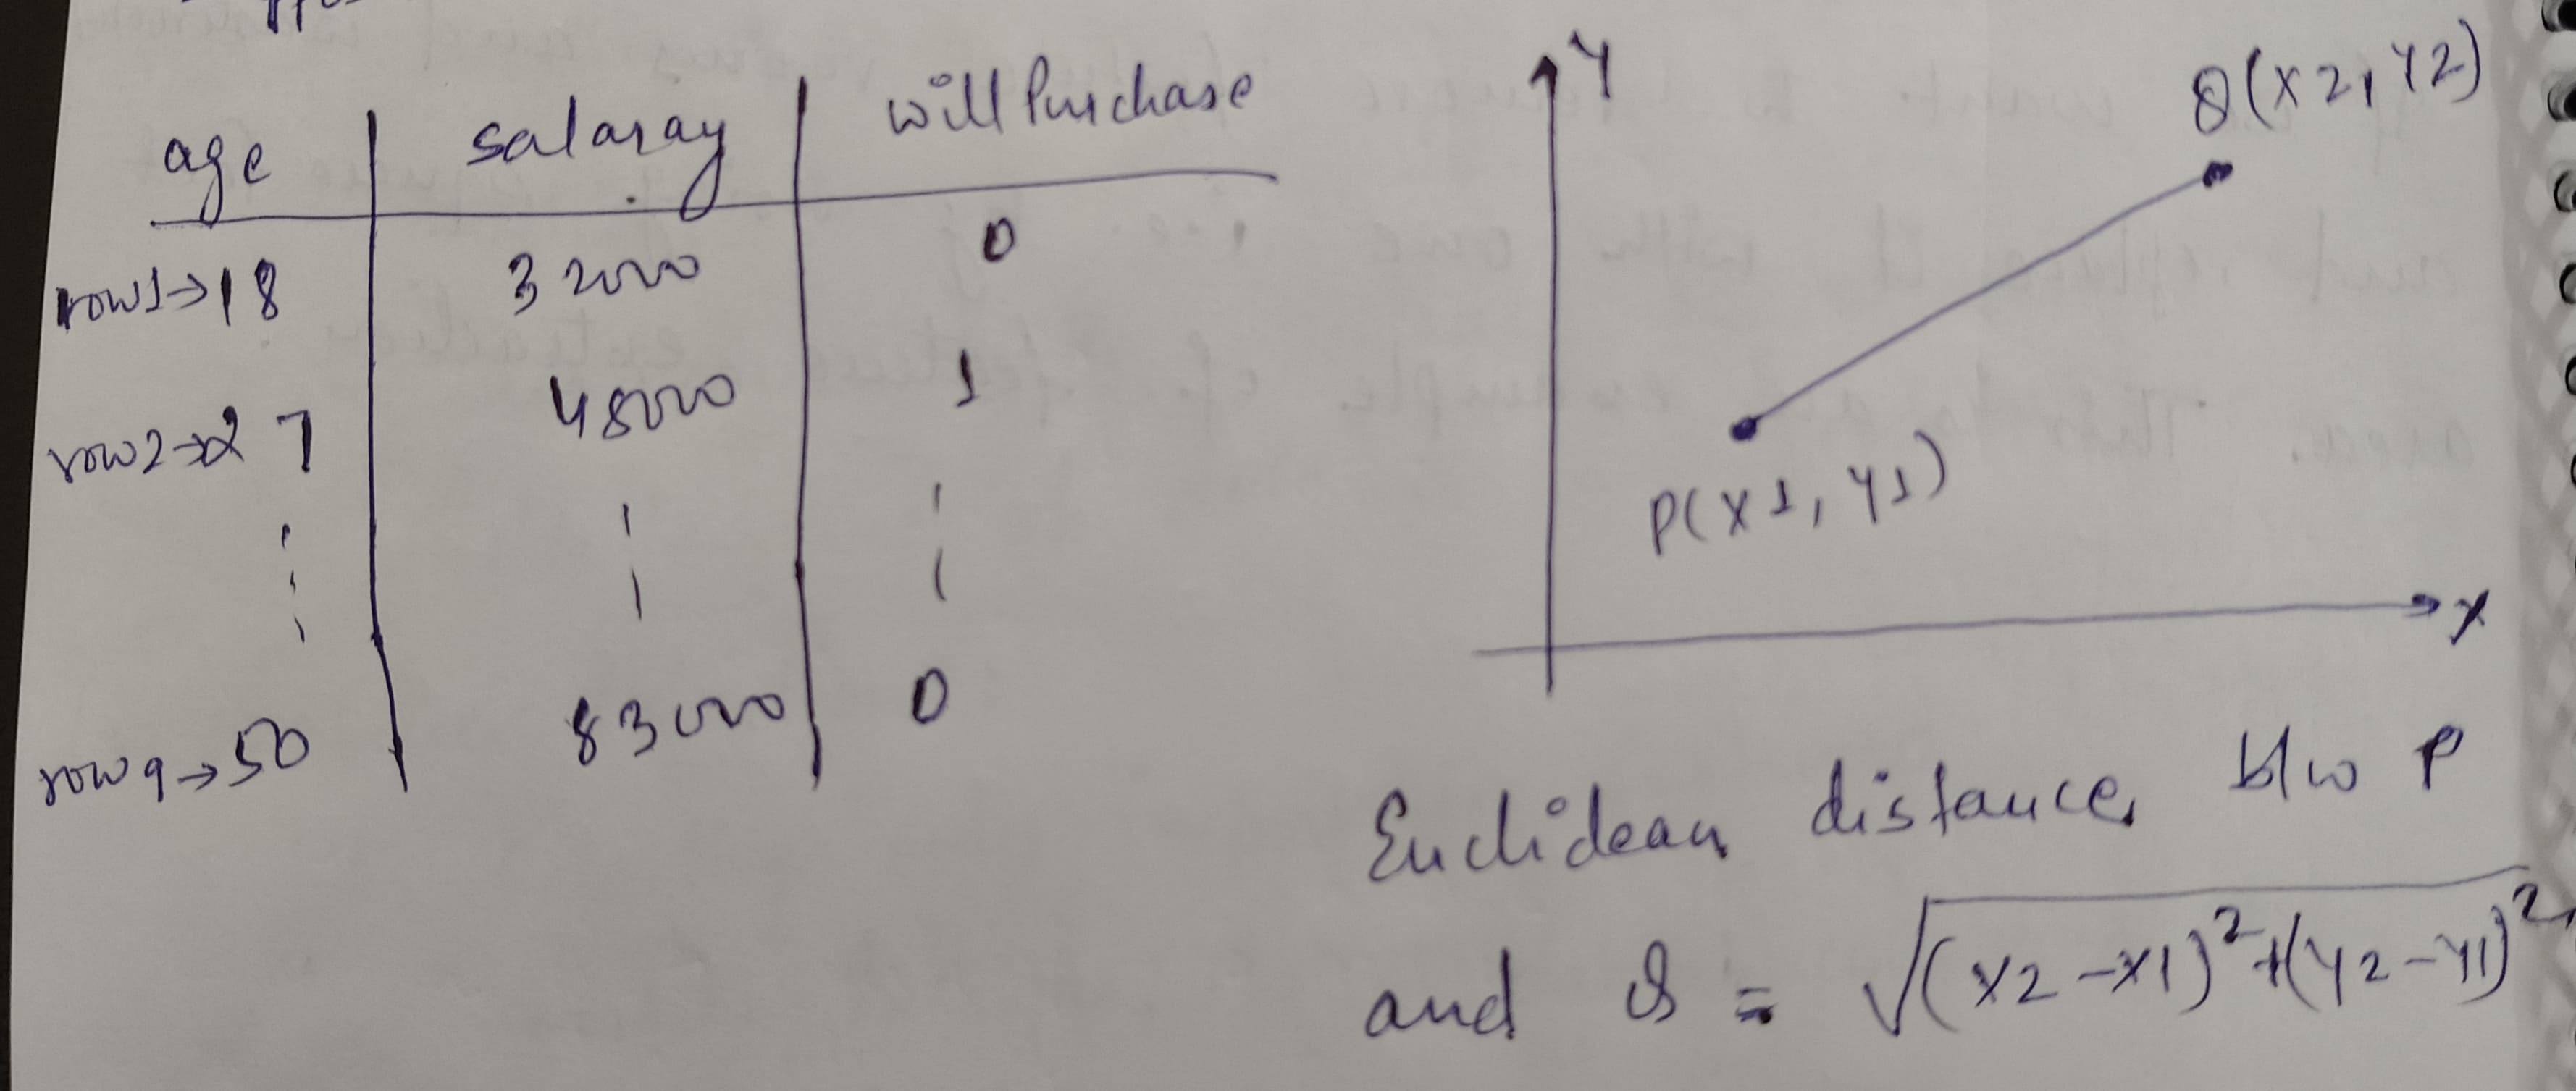 age | salaray | will Purchase
row1→18 | 32000 | 0
row2→27 | 48000 | 1
row9→50 | 83000 | 0
Y
Q(X2, Y2)
P(X1, Y1)
X
Euclidean distance b/w P
and Q = √(X2-X1)²+(Y2-Y1)²